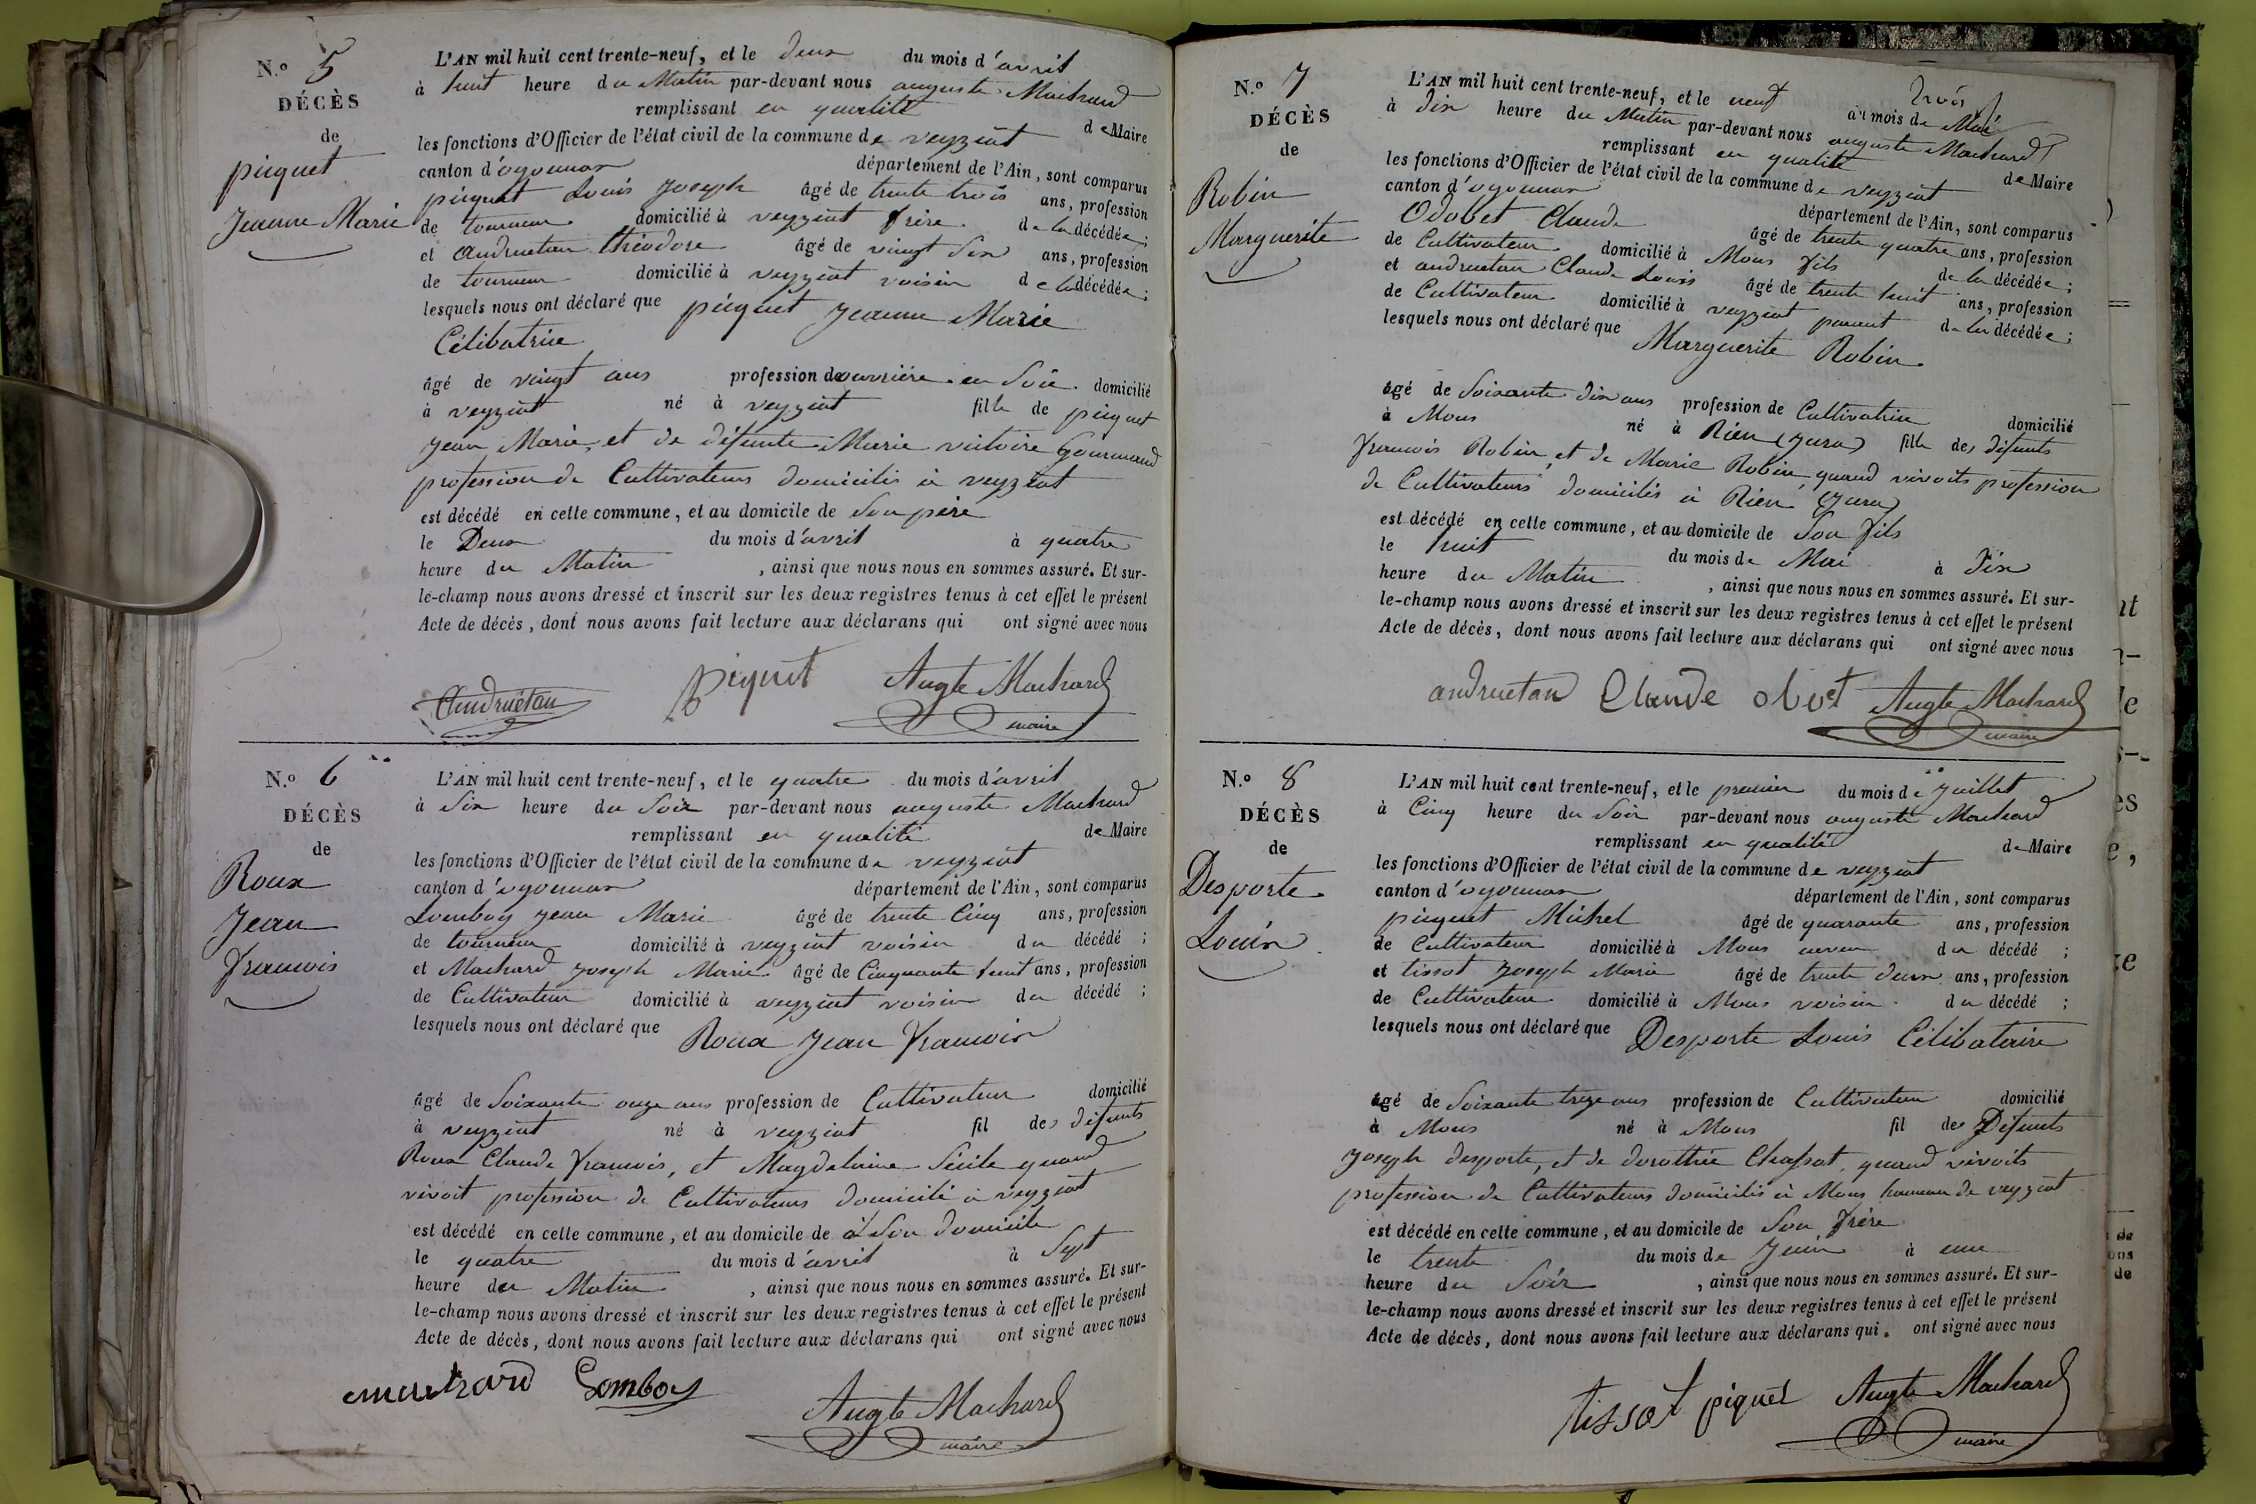 N.o 5
DÉCÈS
de
piequet
Jeanne Marie
L'AN mil huit cent trente-neuf, et le deux du mois d'avril
à huit heure du Matin par-devant nous auguste Machard
remplissant en qualité de Maire
les fonctions d'Officier de l'état civil de la commune de veyziat
canton d'oyonnax département de l'Ain, sont comparus
piequet Louis Joseph âgé de trente trois ans, profession
de tourneur domicilié à veyziat frère de la décédée;
et andruetan théodore âgé de vingt six ans, profession
de tourneur domicilié à veyziat voisin de la décédée;
lesquels nous ont déclaré que piequet Jeanne Marie
Célibatrice
âgé de vingt ans profession de ouvrière en Soie domicilié
à veyziat né à veyziat fille de piequet
Jean Marie, et de défunte Marie victoire Gourmand
profession de Cultivateurs domiciliés à veyziat
est décédé en cette commune, et au domicile de Son père
le Deux du mois d'avril à quatre
heure du Matin, ainsi que nous nous en sommes assuré. Et sur-
le-champ nous avons dressé et inscrit sur les deux registres tenus à cet effet le présent
Acte de décès, dont nous avons fait lecture aux déclarans qui ont signé avec nous
Andruétan piquet Augte Machard
maire
N.o 6
DÉCÈS
de
Roux
Jean
françois
L'AN mil huit cent trente-neuf, et le quatre du mois d'avril
à Six heure du Soir par-devant nous auguste Machard
remplissant en qualité de Maire
les fonctions d'Officier de l'état civil de la commune de veyziat
canton d'oyonnax département de l'Ain, sont comparus
Lomboy jean Marie âgé de trente Cinq ans, profession
de tourneur domicilié à veyziat voisin du décédé;
et Machard Joseph Marie âgé de Cinquante huit ans, profession
de Cultivateur domicilié à veyziat voisin du décédé;
lesquels nous ont déclaré que Roux Jean françois
âgé de Soixante onze ans profession de Cultivateur domicilié
à veyziat né à veyziat fil des défunts
Roux Claude françois, et Magdelaine Sicile quand
vivoit profession de Cultivateurs domicilié à veyziat
est décédé en cette commune, et au domicile de à Son domicile
le quatre du mois d'avril à Sept
heure du Matin, ainsi que nous nous en sommes assuré. Et sur-
le-champ nous avons dressé et inscrit sur les deux registres tenus à cet effet le présent
Acte de décès, dont nous avons fait lecture aux déclarans qui ont signé avec nous
machard Lomboy
Augte Machard
maire
N.o 7
DÉCÈS
de
Robin
Marguerite
L'AN mil huit cent trente-neuf, et le neuf du mois de Mai
à Dix heure du Matin par-devant nous auguste Machard
remplissant en qualité de Maire
les fonctions d'Officier de l'état civil de la commune de veyziat
canton d'oyonnax département de l'Ain, sont comparus
Odobet Claude âgé de trente quatre ans, profession
de Cultivateur domicilié à Mons fils de la décédée;
et andruetan Claude Louis âgé de trente huit ans, profession
de Cultivateur domicilié à veyziat parent de la décédée;
lesquels nous ont déclaré que Marguerite Robin
âgé de Soixante dix ans profession de Cultivatrice domicilié
à Mons né à Rien (Jura) fille des défunts
françois Robin, et de Marie Robin, quand vivoits profession
de Cultivateurs domiciliés à Rien (Jura)
est décédé en cette commune, et au domicile de Son fils
le huit du mois de Mai à Dix
heure du Matin, ainsi que nous nous en sommes assuré. Et sur-
le-champ nous avons dressé et inscrit sur les deux registres tenus à cet effet le présent
Acte de décès, dont nous avons fait lecture aux déclarans qui ont signé avec nous
andruetan Claude obet Augte Machard
maire
N.o 8
DÉCÈS
de
Desporte
Louis
L'AN mil huit cent trente-neuf, et le premier du mois de juillet
à Cinq heure du Soir par-devant nous auguste Machard
remplissant en qualité de Maire
les fonctions d'Officier de l'état civil de la commune de veyziat
canton d'oyonnax département de l'Ain, sont comparus
piequet Michel âgé de quarante ans, profession
de Cultivateur domicilié à Mons neveu du décédé;
et tissot Joseph Marie âgé de trente deux ans, profession
de Cultivateur domicilié à Mons voisin du décédé;
lesquels nous ont déclaré que Desporte Louis Célibataire
âgé de Soixante treze ans profession de Cultivateur domicilié
à Mons né à Mons fil des Défunts
Joseph desporte, et de dorothée Chassat, quand vivoits
profession de Cultivateurs domiciliés à Mons hameau de veyziat
est décédé en cette commune, et au domicile de Son frère
le trente du mois de Juin à une
heure du Soir, ainsi que nous nous en sommes assuré. Et sur-
le-champ nous avons dressé et inscrit sur les deux registres tenus à cet effet le présent
Acte de décès, dont nous avons fait lecture aux déclarans qui. ont signé avec nous
tissot piquet Augte Machard
maire